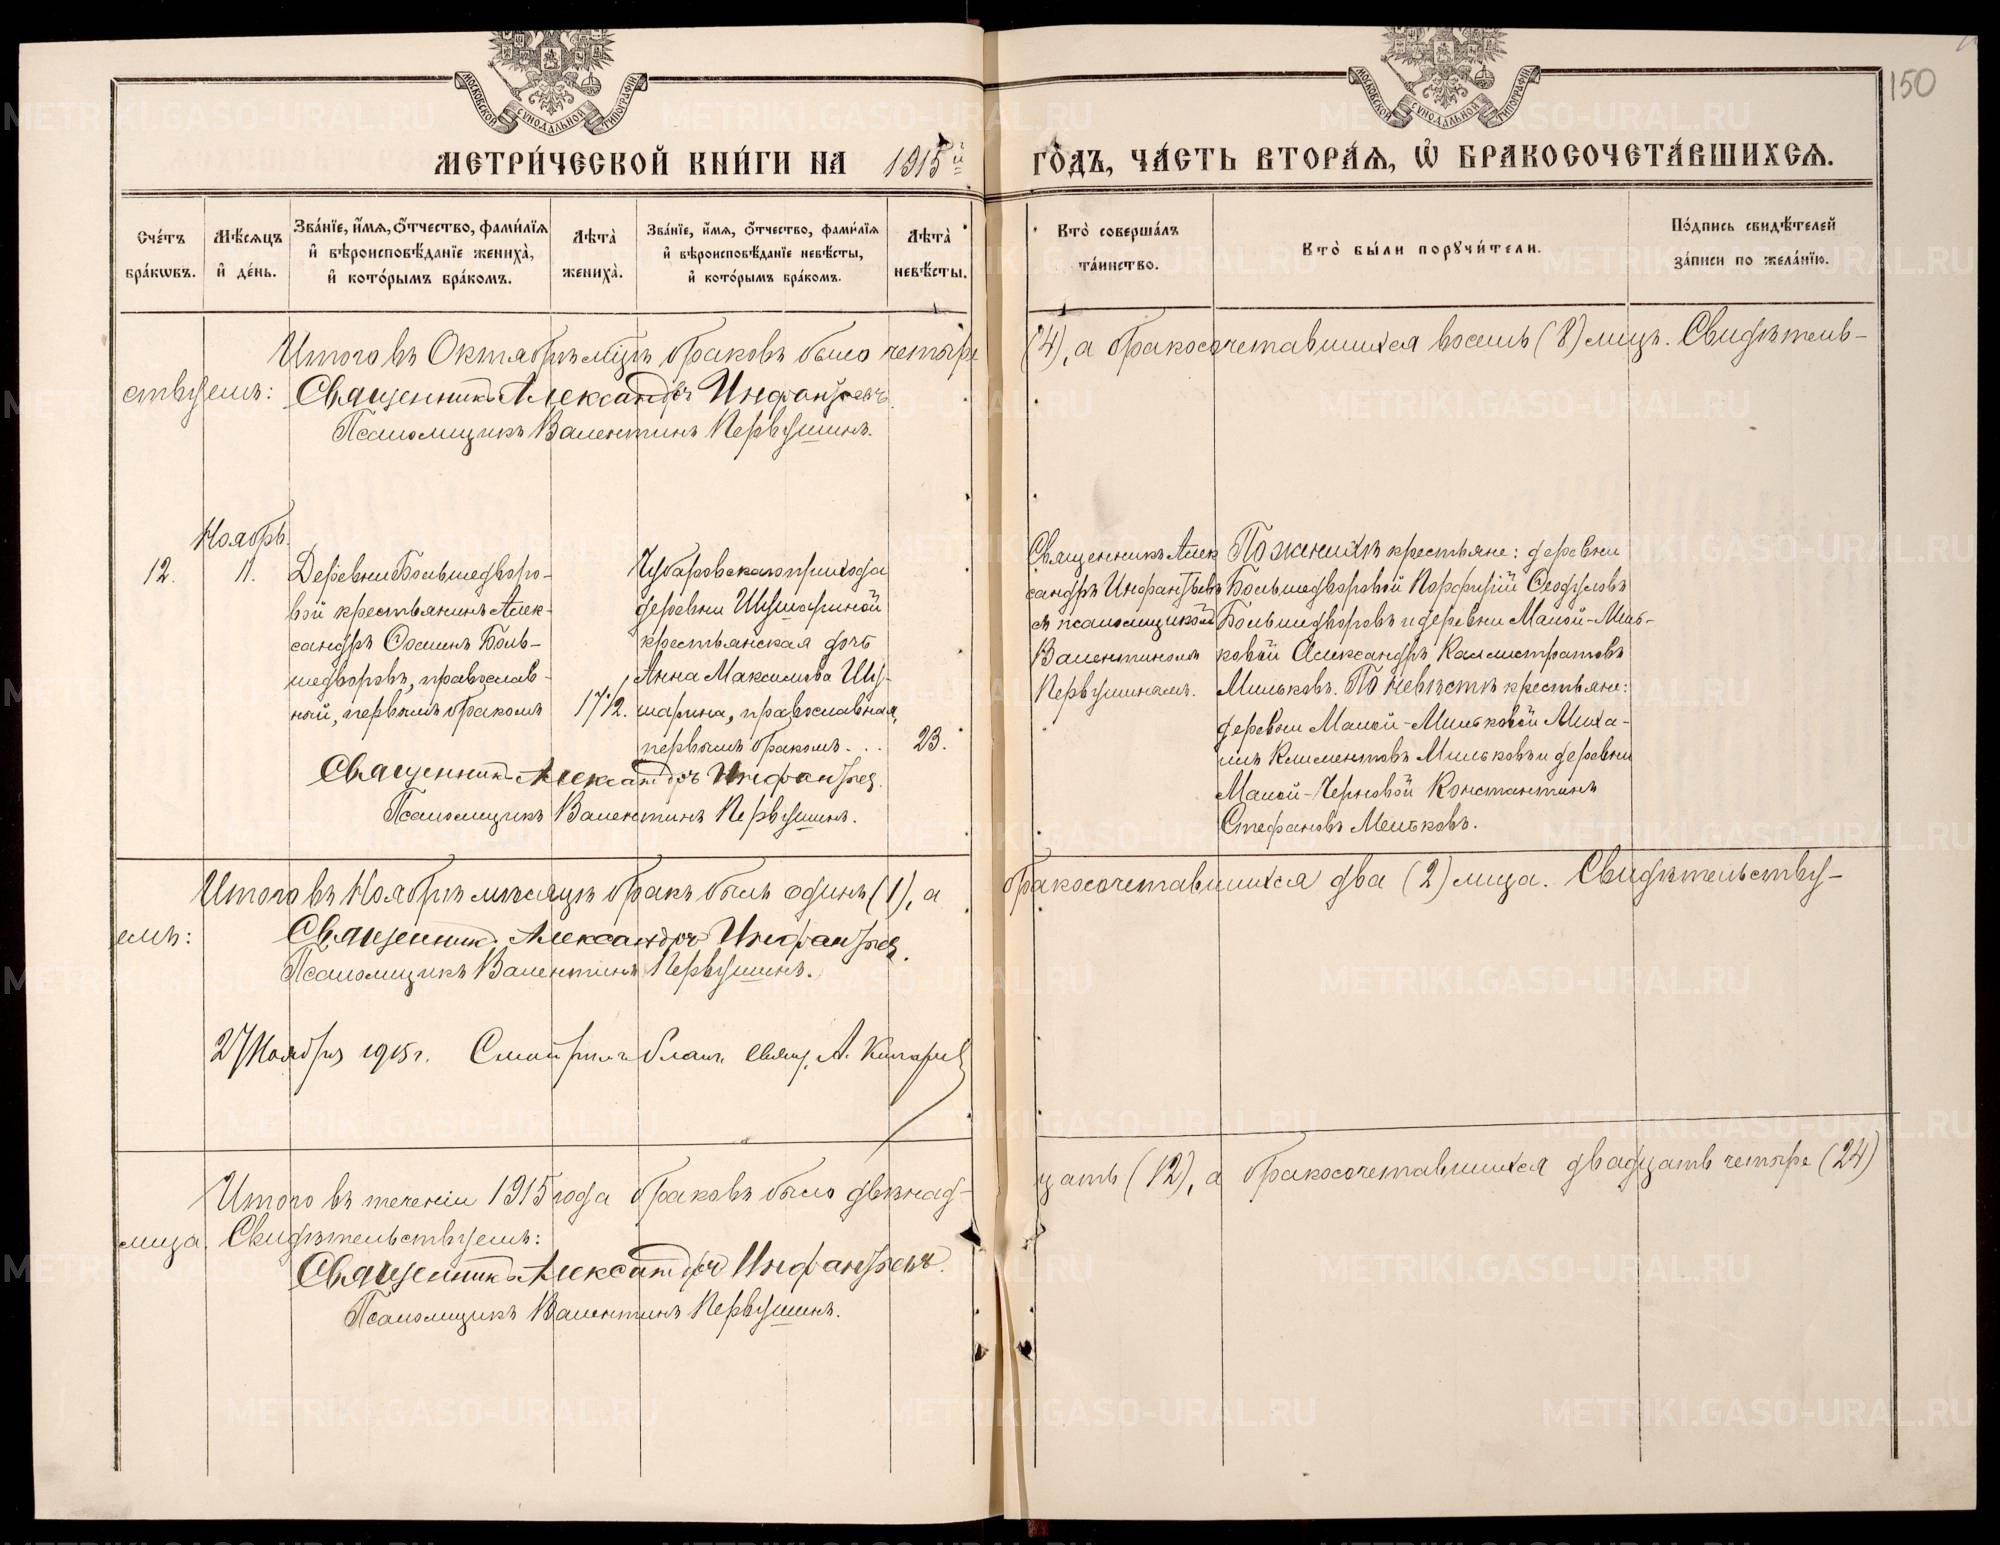 150
МЕТРИ́ЧЕСКОЙ КНИ́ГИ НА 1915й
ГО́ДЪ, ЧА́СТЬ ВТОРА́Я, Ѡ БРАКОСОЧЕТА́ВШИХСЯ.
Сче́тъ бра́кωвъ.
Мѣ́сяцъ и де́нь.
Зва́нїе, и́мя, о́тчество, фами́лїя
и вѣроисповѣ́данїе жениха̀,
и кото́рымъ бра́комъ.
Лѣта̀ жениха̀.
Зва́нїе, и́мя, о́тчество, фами́лїя
и вѣроисповѣ́данїе невѣ́сты,
и кото́рымъ бра́комъ.
Лѣта̀ невѣ́сты.
Кто̀ соверша́лъ та́инство.
Кто̀ бы́ли порꙋчи́тели.
По́дпись свидѣ́телей
за́писи по жела́нїю.
Итого въ Октябрѣ мцѣ браковъ было четыре (4), а бракосочетавшихся восемь (8) лицъ. Свидѣтель-
ствуемъ: Священникъ Александръ Инфантьевъ
Псаломщикъ Валентинъ Первушинъ.
Ноябрь.
12.
11.
Деревни Большедворо-
вой крестьянинъ Алек-
сандръ Осиинъ Боль-
шедворовъ, православ-
ный, первымъ бракомъ
17 1/2.
Чубаровскаго прихода
деревни Шушариной
крестьянская дочь
Анна Максимова Шу-
шарина, православная,
первымъ бракомъ. . .
23.
Священникъ Алек
сандръ Инфантьевъ
съ псаломщикомъ
Валентиномъ
Первушинымъ.
По женихѣ крестьяне: деревни
Большедворовой Порфирій Ѳеодуловъ
Большедворовъ и деревни Малой-Миль-
ковой Александръ Каллистратовъ
Мильковъ. По невѣстѣ крестьяне:
деревни Малой-Мильковой Миха-
илъ Климентовъ Мильковъ и деревни
Малой-Черновой Константинъ
Стефановъ Мельковъ.
Священникъ Александръ Инфантьев.
Псаломщикъ Валентинъ Первушинъ.
Итого въ Ноябрѣ мѣсяцѣ бракъ былъ одинъ (1), а бракосочетавшихся два (2) лица. Свидѣтельству-
емъ: Священникъ Александръ Инфантьев.
Псаломщикъ Валентинъ Первушинъ.
27 Ноября 1915 г. Смотрилъ благ. свящ. А.
Итого въ теченіи 1915 года браковъ было двѣнад-
цать (12), а бракосочетавшихся двадцать четыре (24)
лица. Свидѣтельствуемъ:
Священникъ Александръ Инфантьевъ.
Псаломщикъ Валентинъ Первушинъ.
METRIKI.GASO-URAL.RU